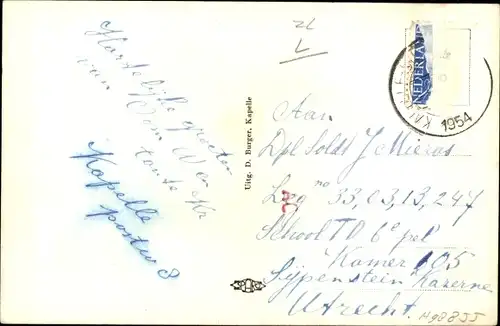 Hartelijke groeten
van Oom W en
tante
Kapelle
postw 8
ZL
V
Uitg. D. Burger, Kapelle
NEDERLAND
KAPELLE
1954
Aan
Dpl Soldt J Mieras
Leg no 33,03,13,247
School TD 6e pel
Kamer 105
Sypenstein Kazerne
Utrecht.
H98855